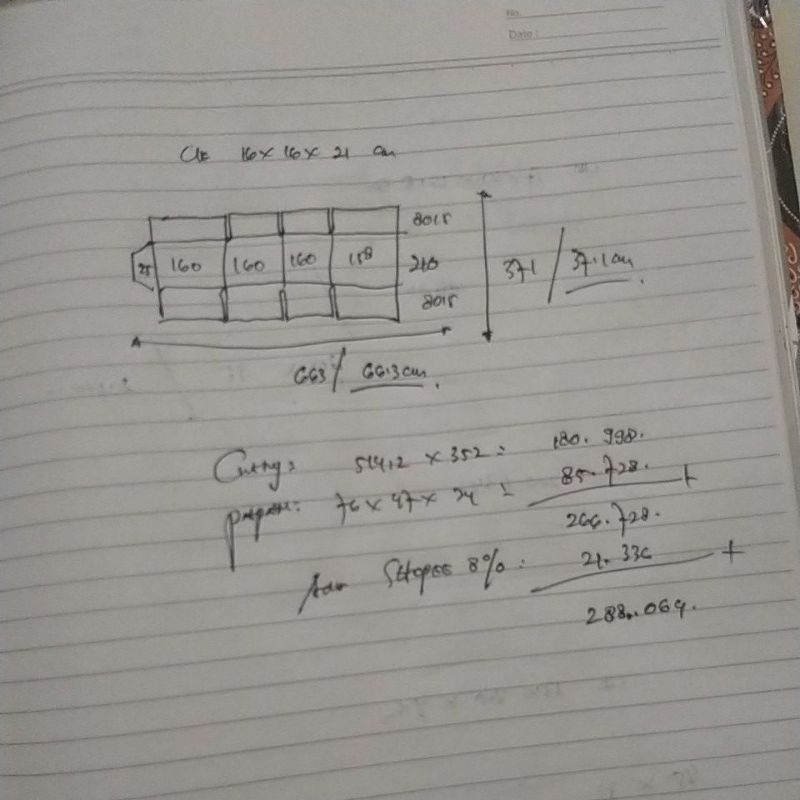 No.
Date :
16 x 16 x 21 cm
80.5
25 160 160 160 158 210
371 / 37.1 cm
80.5
663 / 66.3 cm
514,2 x 352 = 180. 998.
76 x 47 x 24 = 85. 728. +
266. 728.
Adm SHOPEE 8% : 21. 336 +
288. 064.